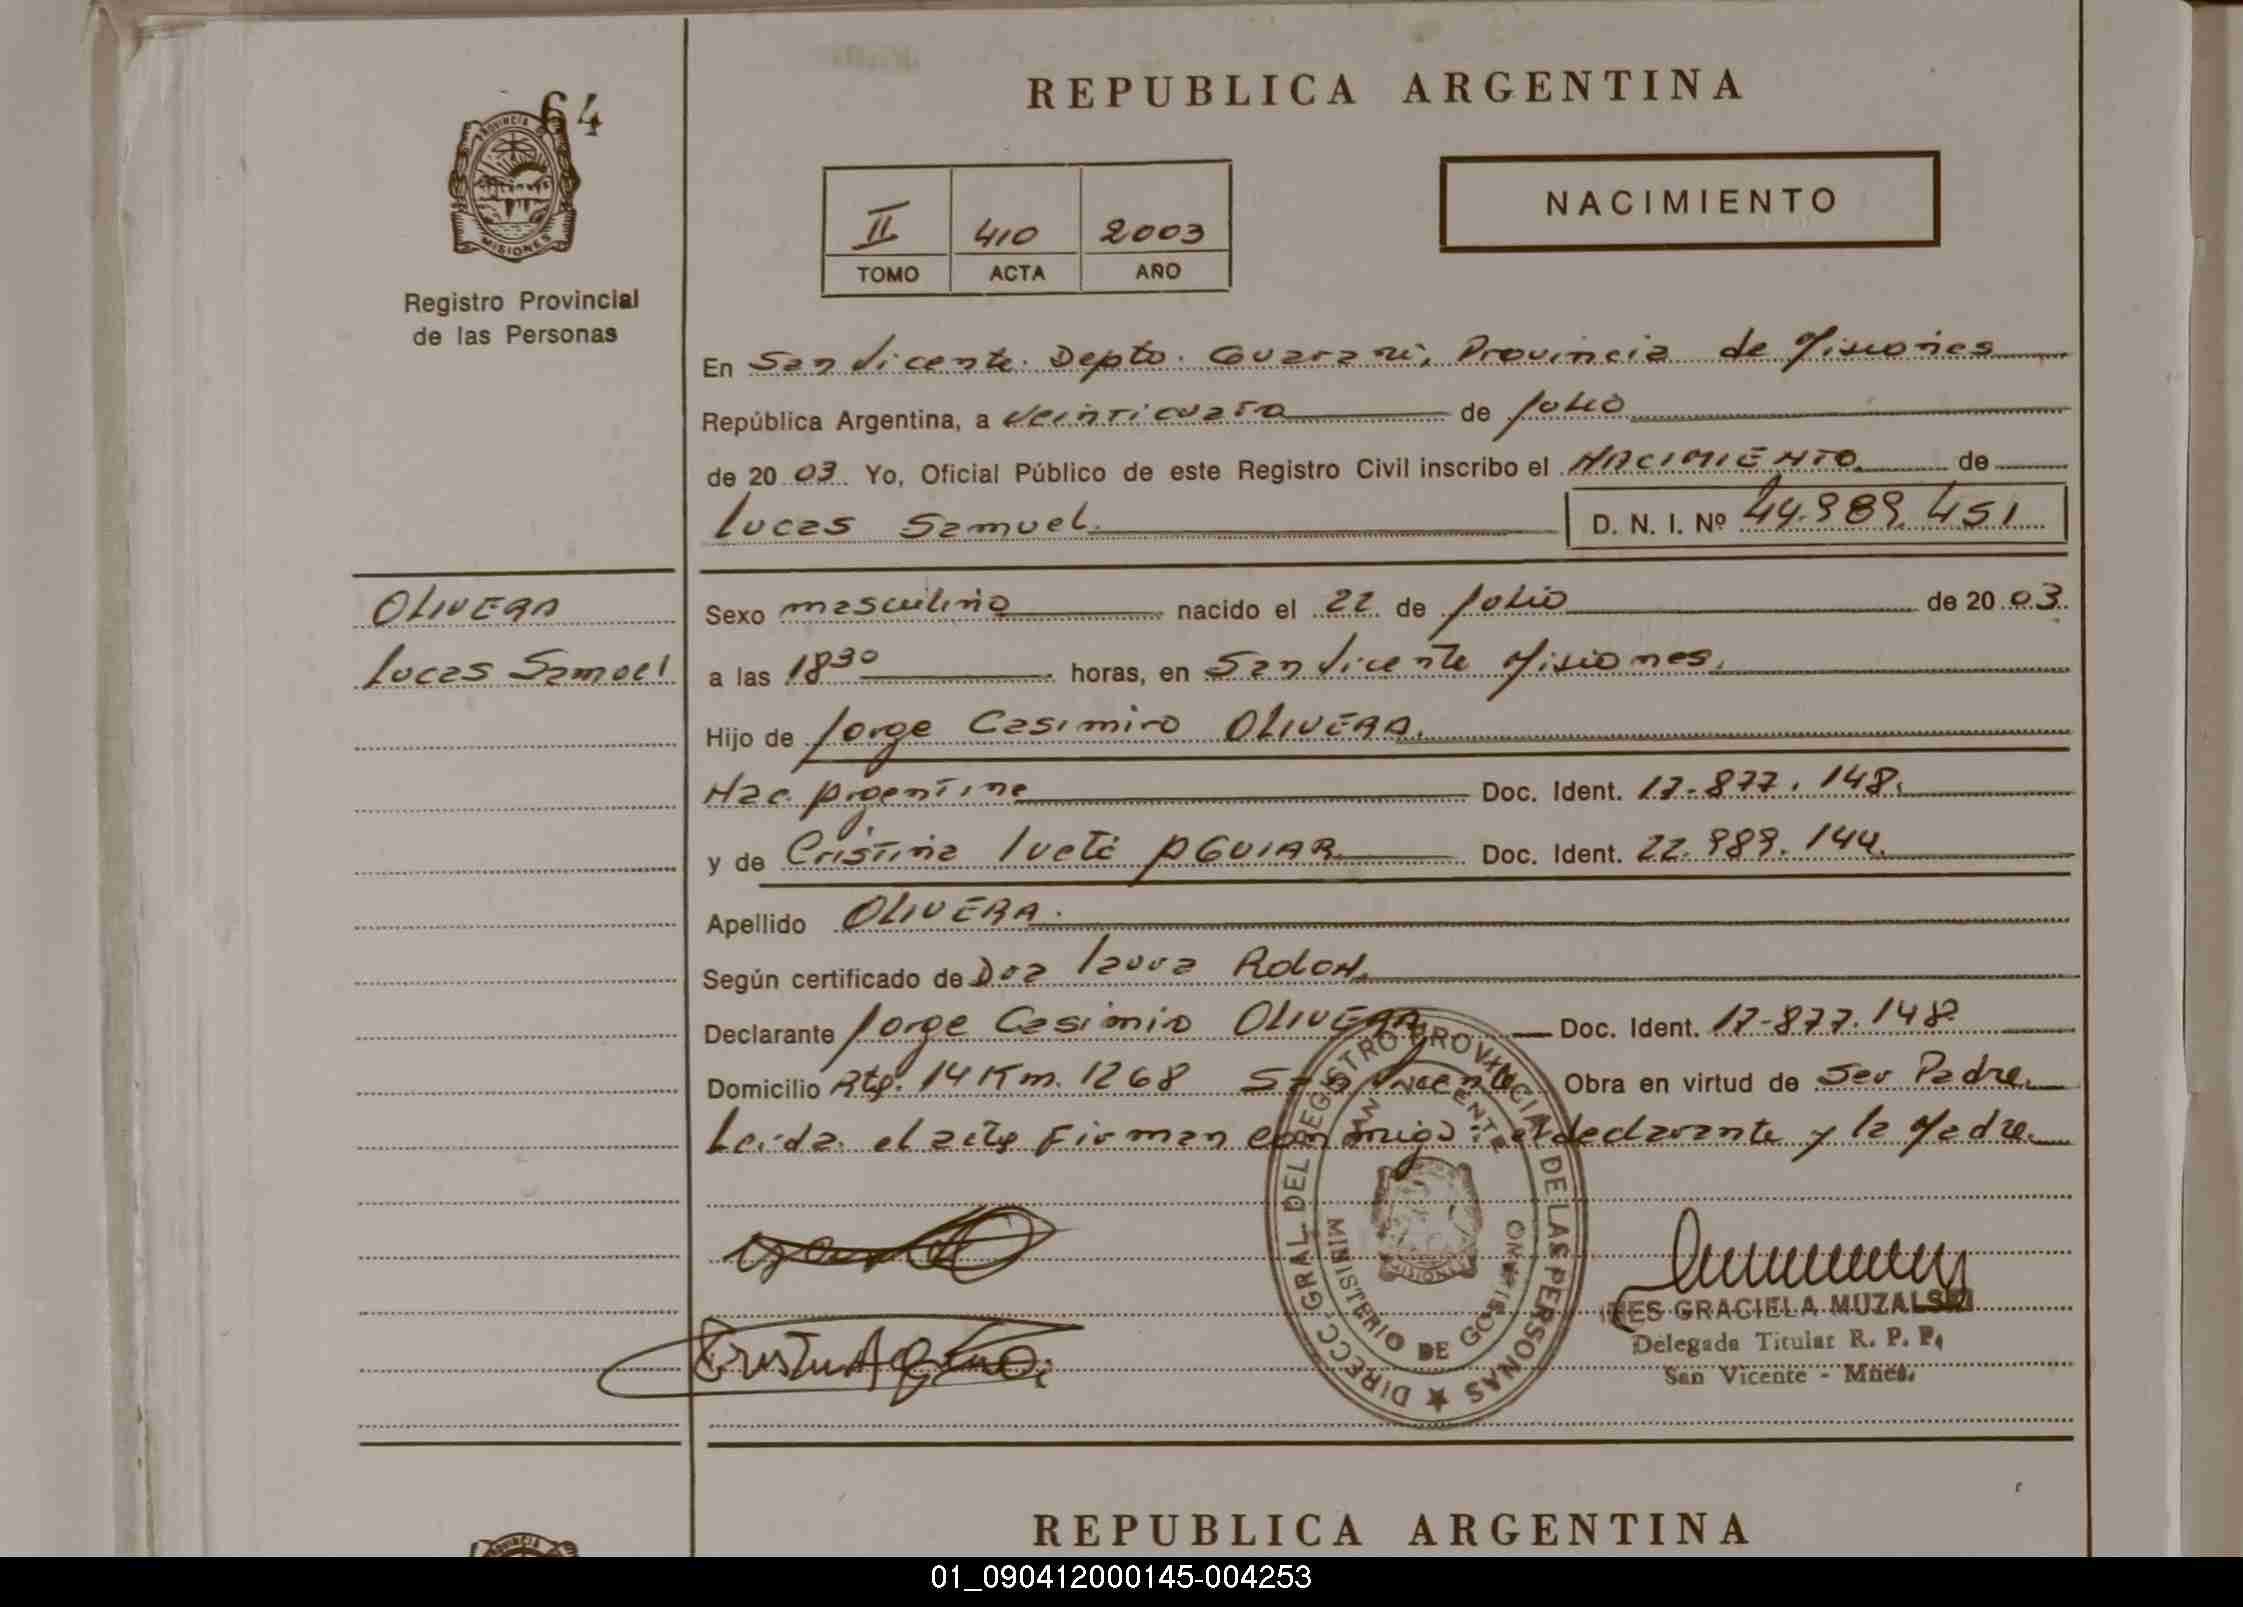 64
PROVINCIA DE
MISIONES
Registro Provincial
de las Personas
REPUBLICA ARGENTINA
II 410 2003
TOMO ACTA AÑO
NACIMIENTO
En San Vicente. Depto. Guarani, Provincia de Misiones
República Argentina, a veinticuatro de Julio
de 20 03. Yo, Oficial Público de este Registro Civil inscribo el NACIMIENTO de
Lucas Samuel. D. N. I. Nº 44.989.451
OLIVERA
Lucas Samuel
Sexo masculino nacido el 22 de Julio de 20 03.
a las 18 30 horas, en San Vicente Misiones.
Hijo de Jorge Casimiro OLIVERA.
Nac. Argentina Doc. Ident. 17.877.148.
y de Cristina Ivete AGUIAR Doc. Ident. 22.989.144.
Apellido OLIVERA.
Según certificado de Dra Rolon.
Declarante Jorge Casimiro OLIVERA Doc. Ident. 17.877.148
Domicilio Rta. 14 Km. 1268 San Vicente Obra en virtud de ser Padre.
Leida el acta Firman conmigo: el declarante y la Madre.
DIRECC. GRAL. DEL REGISTRO PROVINCIAL DE LAS PERSONAS
SAN VICENTE
MINISTERIO DE GOBIERNO
MISIONES
INES GRACIELA MUZALSKI
Delegada Titular R. P. P.
San Vicente - Mnes.
REPUBLICA ARGENTINA
PROVINCIA
01_090412000145-004253